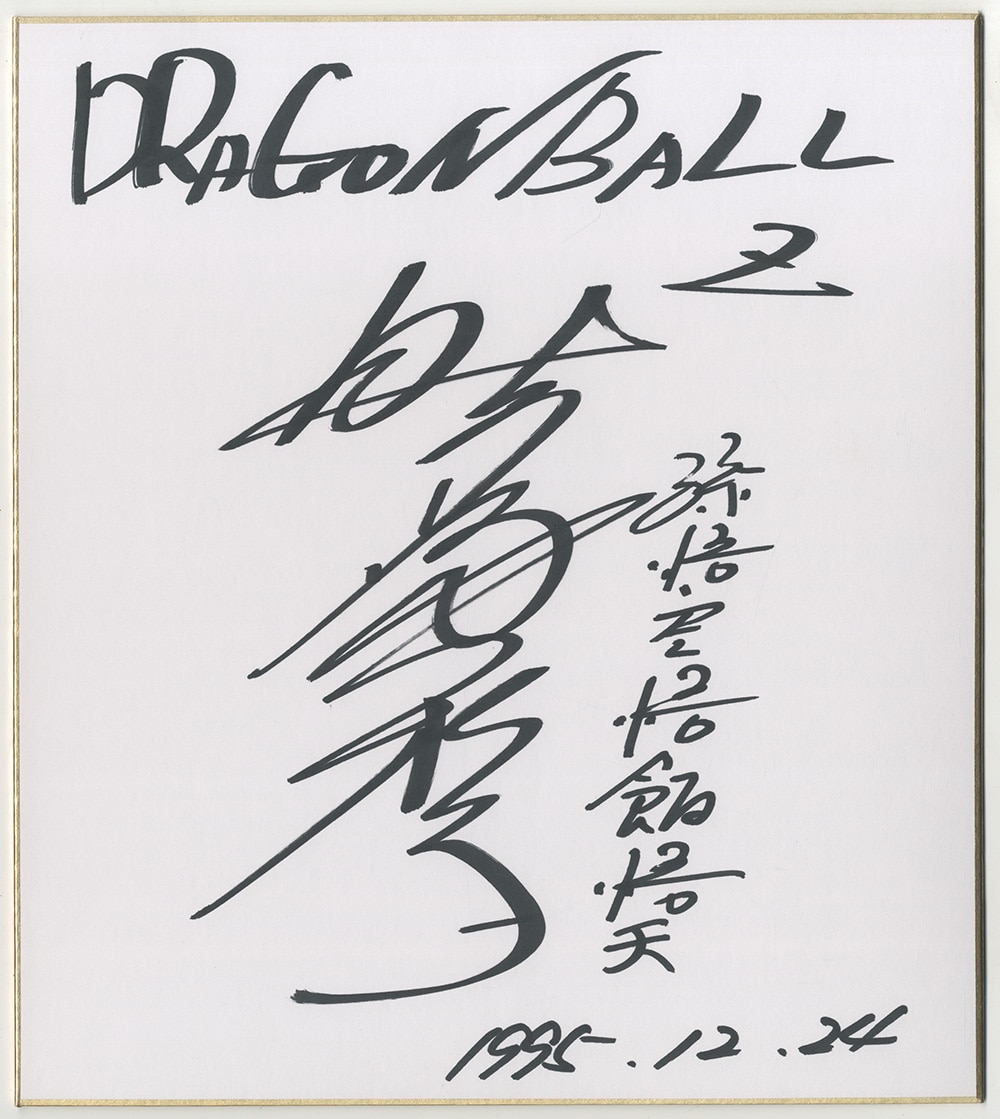 DRAGON BALL
Z
孫悟空悟飯悟天
1995.12.24